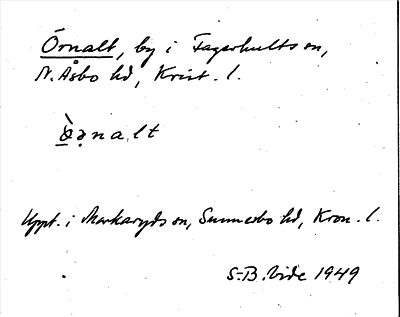 Örnalt, by i Fagerhults sn,
N. Åsbo hd, Krist. l.
ø̀ə̣nalt
Uppt. i Markaryds sn, Sunnerbo hd, Kron. l.
S-B. Vide 1949